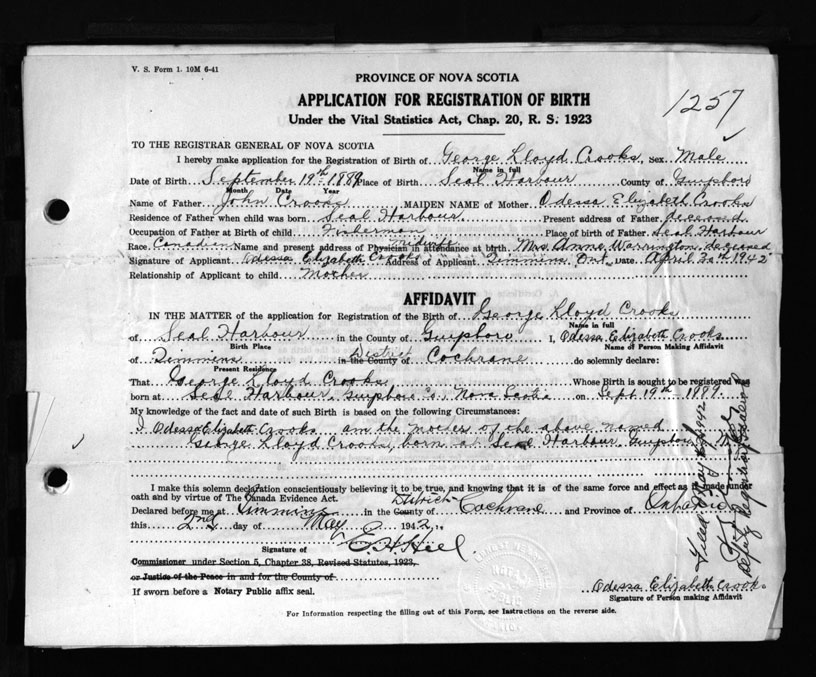 V. S. Form 1. 10M 6-41
PROVINCE OF NOVA SCOTIA
APPLICATION FOR REGISTRATION OF BIRTH
1257
Under the Vital Statistics Act, Chap. 20, R. S. 1923
TO THE REGISTRAR GENERAL OF NOVA SCOTIA
I hereby make application for the Registration of Birth of George Lloyd Crooks, Sex Male
Name in full
Date of Birth September 19th 1889 Place of Birth Seal Harbour County of Guysboro
Month Date Year
Name of Father John Crooks MAIDEN NAME of Mother Odessa Elizabeth Crooks
Residence of Father when child was born Seal Harbour Present address of Father deceased
Occupation of Father at Birth of child Fisherman Place of birth of Father Seal Harbour
Race Canadian Name and present address of Physician in attendance at birth midwife Mrs. Anne Warrington deceased
Signature of Applicant Odessa Elizabeth Crooks Address of Applicant Timmins Ont. Date April 30th 1942
Relationship of Applicant to child Mother
AFFIDAVIT
IN THE MATTER of the application for Registration of the Birth of George Lloyd Crooks
Name in full
of Seal Harbour in the County of Guysboro I, Odessa Elizabeth Crooks
Birth Place Name of Person Making Affidavit
of Timmins in the County of District Cochrane do solemnly declare:
Present Residence
That George Lloyd Crooks Whose Birth is sought to be registered was
born at Seal Harbour, Guysboro Co. Nova Scotia on Sept 19th 1889.
My knowledge of the fact and date of such Birth is based on the following Circumstances:
I Odessa Elizabeth Crooks am the mother of the above named
George Lloyd Crooks, born at Seal Harbour Guysboro
I make this solemn declaration conscientiously believing it to be true, and knowing that it is of the same force and effect as if made under
oath and by virtue of The Canada Evidence Act.
Declared before me at Timmins in the County of District Cochrane and Province of Ontario
this 2nd day of May 1942.
E. H. Hill.
Signature of
Commissioner under Section 5, Chapter 38, Revised Statutes, 1923,
or Justice of the Peace in and for the County of
If sworn before a Notary Public affix seal.
Odessa Elizabeth Crooks
Signature of Person making Affidavit
For Information respecting the filling out of this Form, see Instructions on the reverse side.
Deputy Registrar General